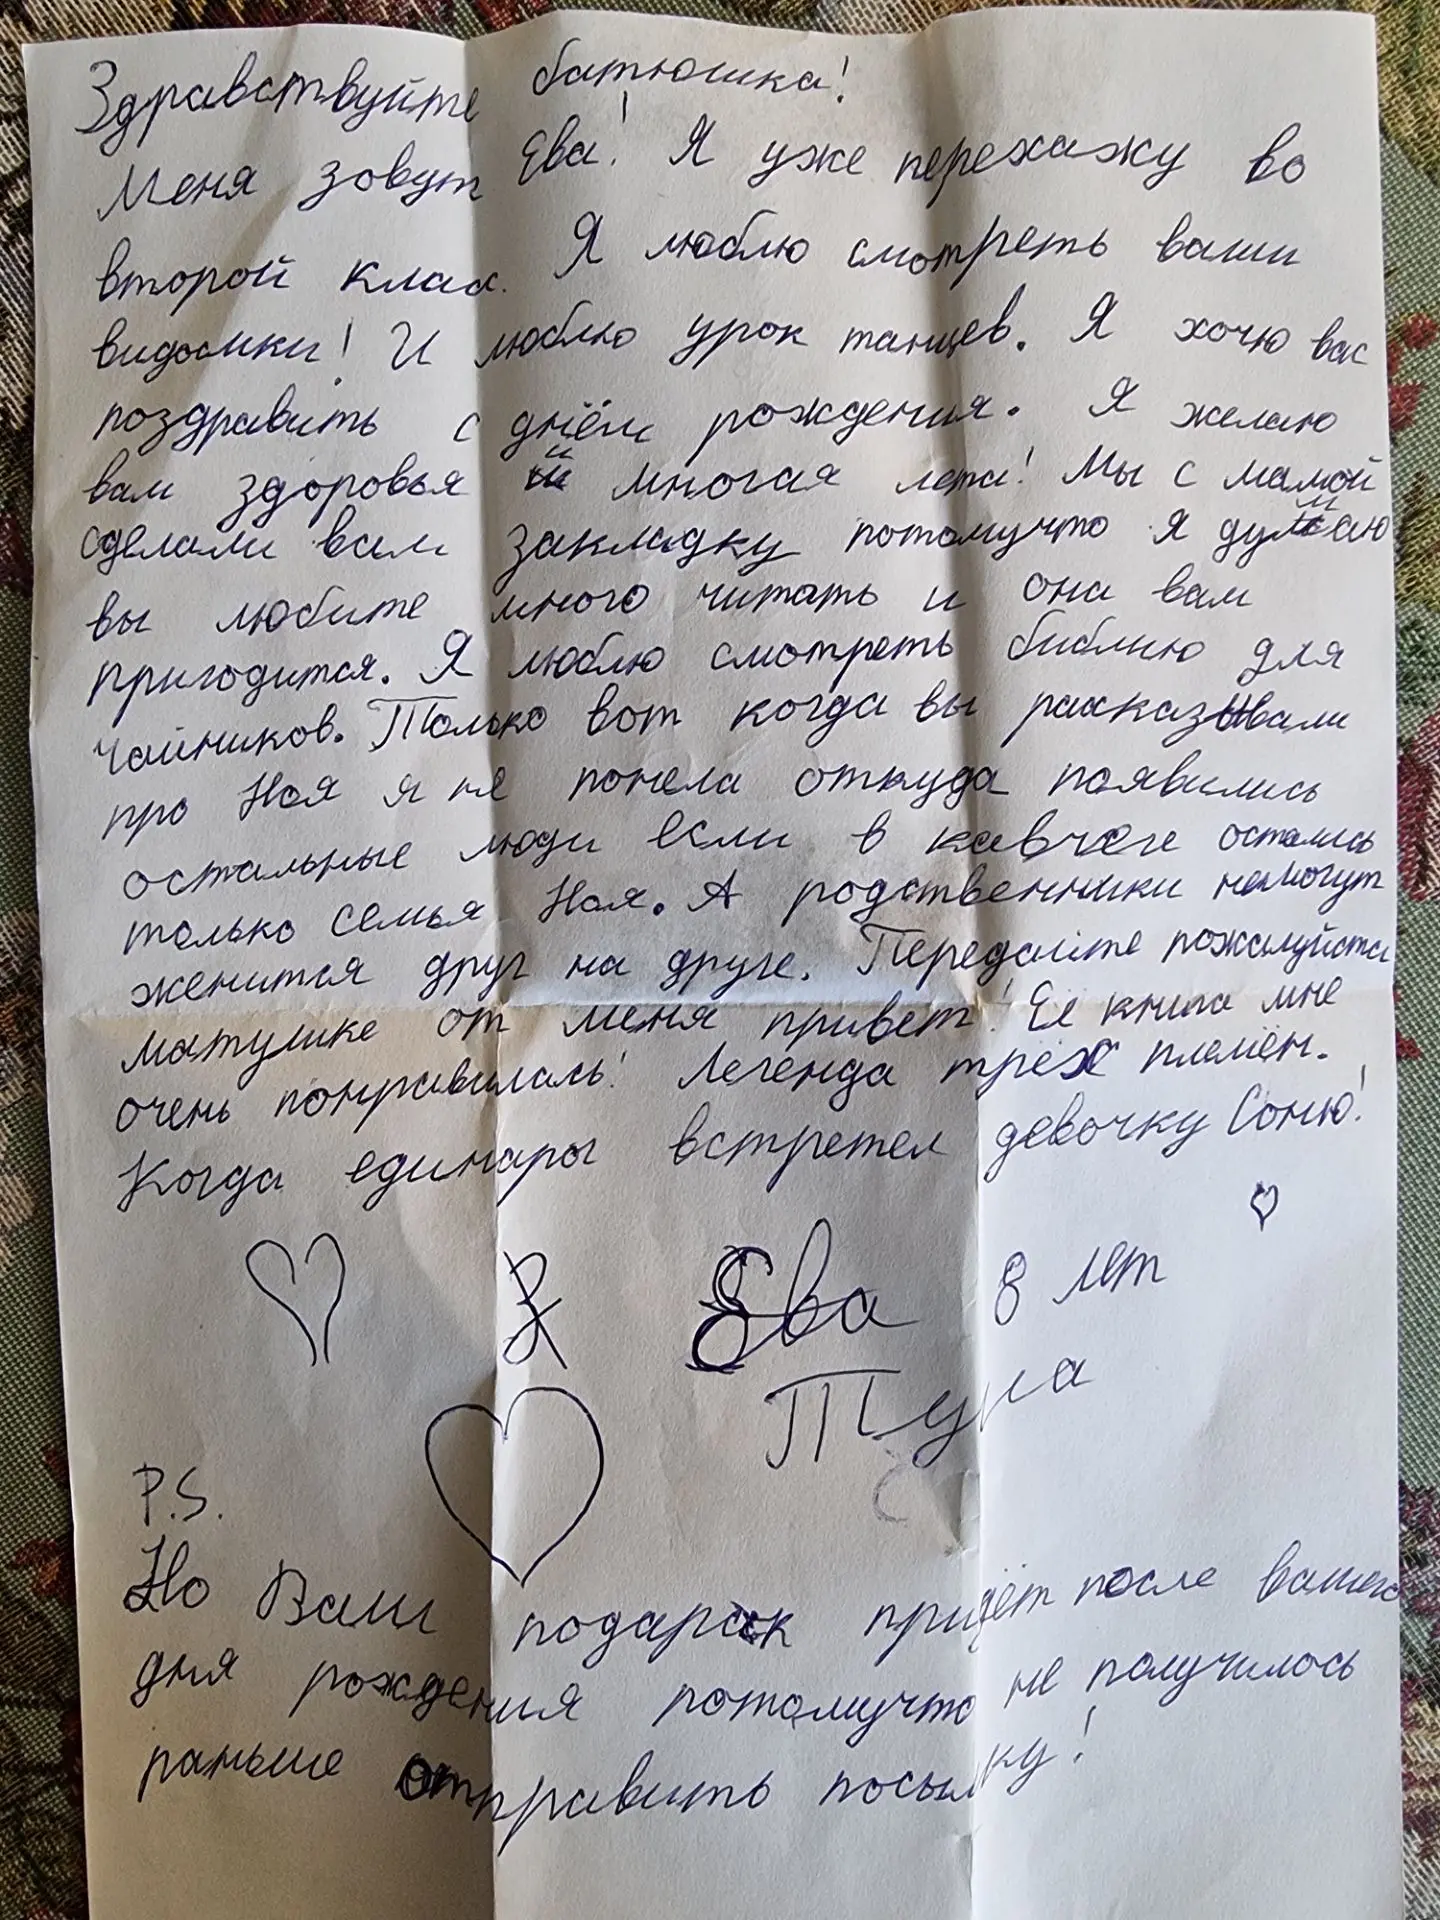 Здравствуйте батюшка!
Меня зовут Ева! Я уже перехажу во
второй клас. Я люблю смотреть ваши
видосики! И люблю урок танцев. Я хочю вас
поздравить с днём рождения. Я желаю
вам здоровья и многая лета! Мы с мамой
сделали вам закладку потомучто я думаю
вы любите много читать и она вам
пригодится. Я люблю смотреть библию для
чайников. Только вот когда вы расказывали
про Ноя я не понела откуда появились
остальные люди если в кавчеге остались
только семья Ноя. А родственники немогут
женится друг на друге. Передайте пожалуйста
матушке от меня привет! Её книга мне
очень понравилась! Легенда трёх племён.
Когда единарог встретел девочку Соню!
Ева 8 лет
Тула
P.S.
Но Ваш подарок придёт после вашего
дня рождения потомучто не получилось
раньше отправить посылку!